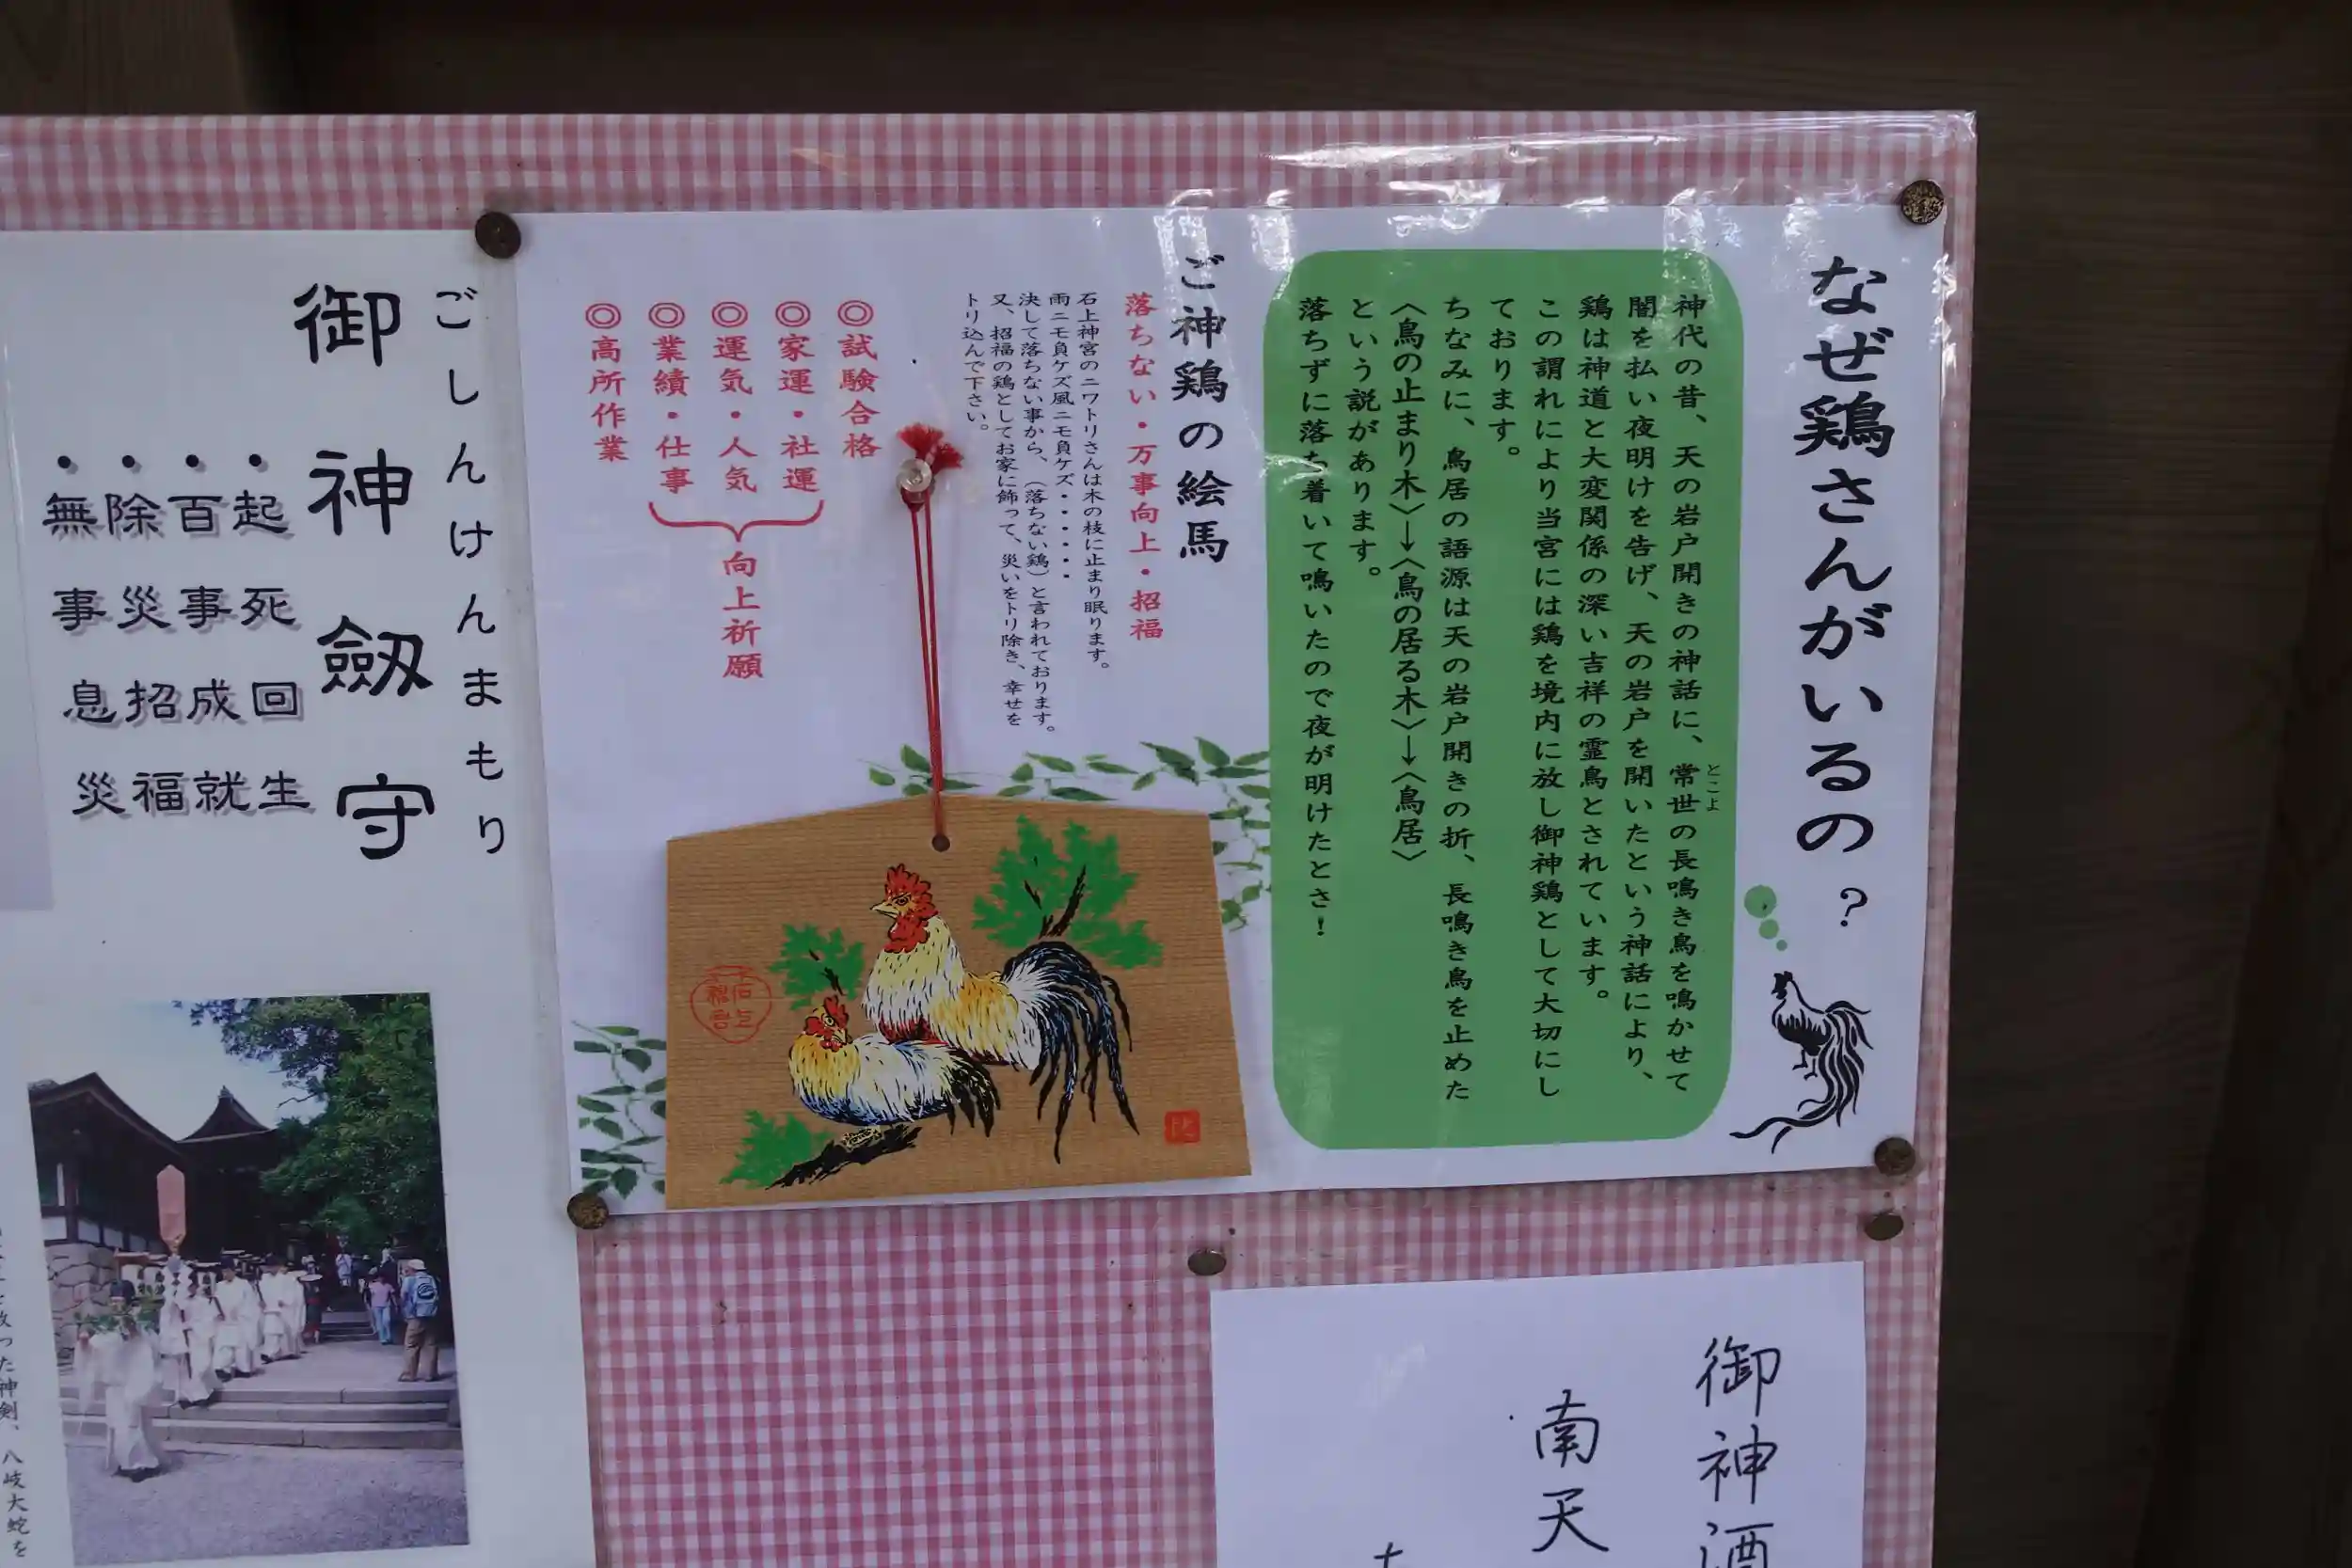 なぜ鶏さんがいるの?
神代の昔、天の岩戸開きの神話に、常世の長鳴き鳥を鳴かせて
とこよ
闇を払い夜明けを告げ、天の岩戸を開いたという神話により、
鶏は神道と大変関係の深い吉祥の霊鳥とされています。
この謂れにより当宮には鶏を境内に放し御神鶏として大切にし
ております。
ちなみに、鳥居の語源は天の岩戸開きの折、長鳴き鳥を止めた
〈鳥の止まり木〉→〈鳥の居る木〉→〈鳥居〉
という説があります。
落ちずに落ち着いて鳴いたので夜が明けたとさ!
ご神鶏の絵馬
落ちない・万事向上・招福
石上神宮のニワトリさんは木の枝に止まり眠ります。
雨ニモ負ケズ風ニモ負ケズ・・・・・・
決して落ちない事から、(落ちない鶏)と言われております。
又、招福の鶏としてお家に飾って、災いをトリ除き、幸せを
トリ込んで下さい。
◎試験合格
◎家運・社運
◎運気・人気
◎業績・仕事
◎高所作業
向上祈願
石上
神宮
ごしんけんまもり
御神劔守
・起死回生
・百事成就
・除災招福
・無事息災
神剣、八岐大蛇を
御神酒
南天